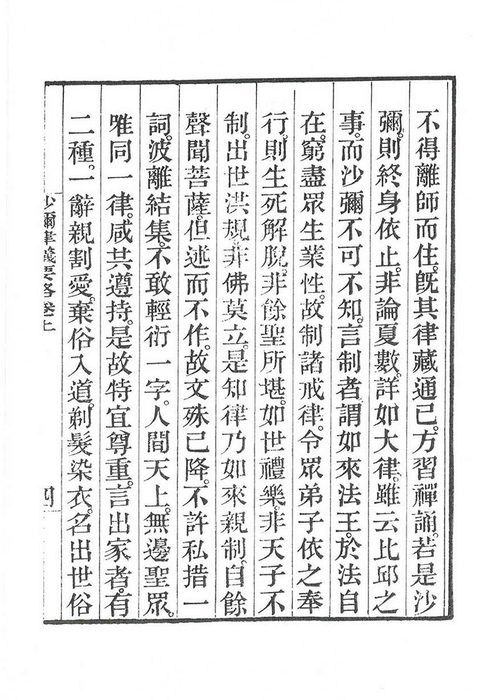 不得離師而住。旣其律藏通已。方習禪誦。若是沙
彌。則終身依止。非論夏數。詳如大律。雖云比邱之
事。而沙彌不可不知。言制者。謂如來法王。於法自
在。窮盡眾生業性。故制諸戒律。令眾弟子依之奉
行。則生死解脫。非餘聖所堪。如世禮樂。非天子不
制。出世洪規。非佛莫立。是知律乃如來親制。自餘
聲聞菩薩。但述而不作。故文殊已降。不許私措一
詞。波離結集。不敢輕衍一字。人間天上。無邊聖眾。
唯同一律。咸共遵持。是故特宜尊重。言出家者。有
二種。一辭親割愛。棄俗入道。剃髮染衣。名出世俗
沙彌律儀要略卷上 四